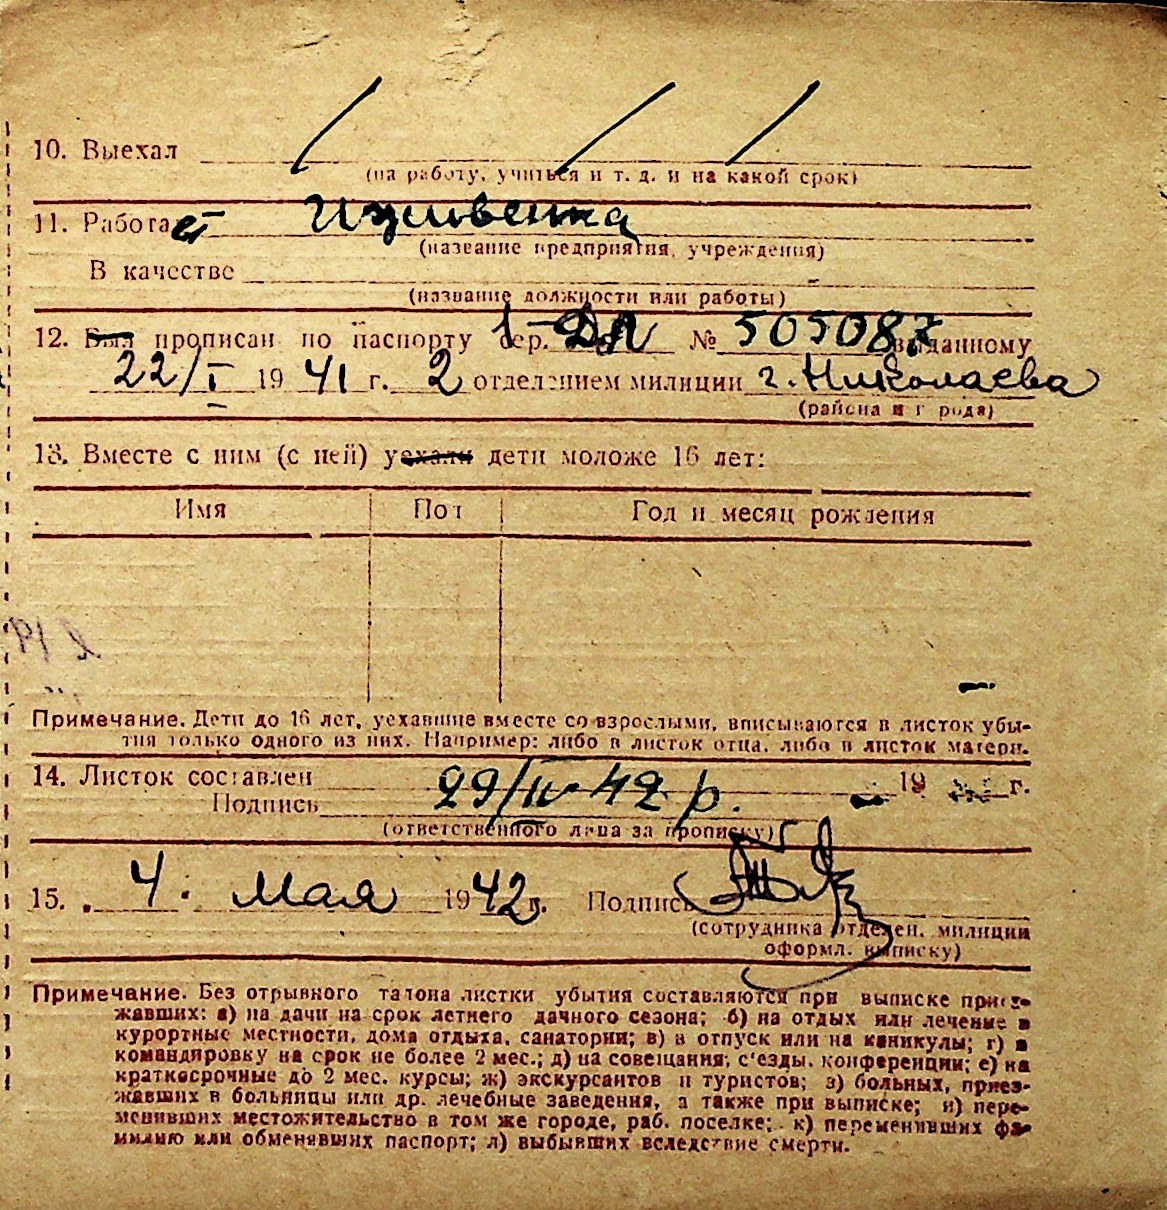 10. Выехал
(на работу, учиться и т. д. и на какой срок)
11. Работает Иждивенка
(название предприятия, учреждения)
В качестве
(название должности или работы)
12. Был прописан по паспорту сер. № 505087 выданному
22/I 1941 г. 2 отделением милиции г. Николаева
(района и города)
13. Вместе с ним (с ней) уехали дети моложе 16 лет:
Имя Пол Год и месяц рождения
Примечание. Дети до 16 лет, уехавшие вместе со взрослыми, вписываются в листок убы-
тия только одного из них. Например: либо в листок отца, либо в листок матери.
14. Листок составлен 19 г.
29/IV-42 р.
Подпись
(ответственного лица за прописку)
15. 4. мая 1942 г. Подпись
(сотрудника отделен. милиции
оформл. выписку)
Примечание. Без отрывного талона листки убытия составляются при выписке приез-
жавших: а) на дачи на срок летнего дачного сезона; б) на отдых или лечение в
курортные местности, дома отдыха, санатории; в) в отпуск или на каникулы; г) в
командировку на срок не более 2 мес.; д) на совещания, с'езды, конференции; е) на
краткосрочные до 2 мес. курсы; ж) экскурсантов и туристов; з) больных, приез-
жавших в больницы или др. лечебные заведения, а также при выписке; и) пере-
менивших местожительство в том же городе, раб. поселке; к) переменивших фа-
милию или обменявших паспорт; л) выбывших вследствие смерти.